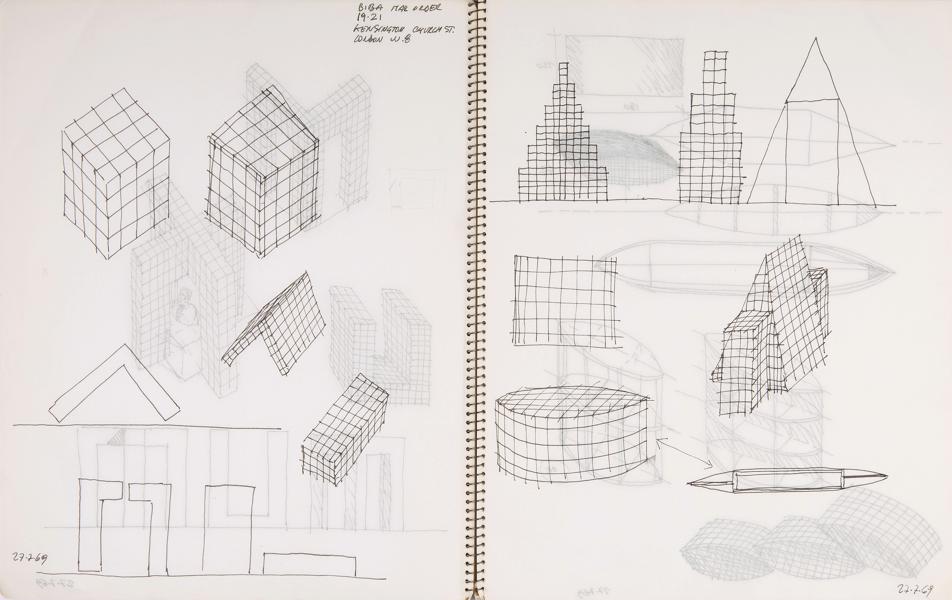 BIBA MAIL ORDER
19-21
KENSINGTON CHURCH ST.
LONDON W.8
27-7-69
27-7-69